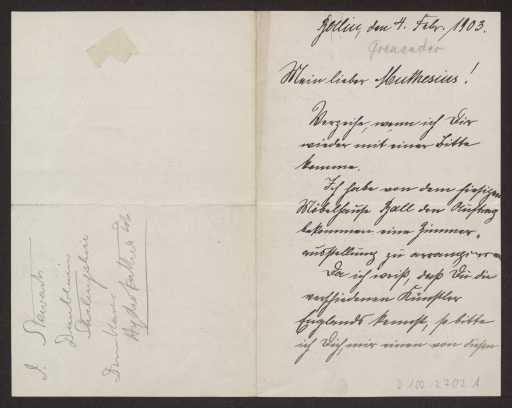 Berlin, den 4. Febr. 1903.
Grenander
Mein lieber Muthesius!
Verzeihe, wenn ich Dir
wieder mit einer Bitte
komme.
Ich habe von dem hiesigen
Möbelhause Ball den Auftrag
bekommen eine Zimmer-
ausstellung zu arrangieren
Da ich weiß, daß Du die
verschiedenen Künstler
Englands kennst, so bitte
ich Dich, mir einen von diesen
D 102-2702 A
J. Stewart
Dunblane